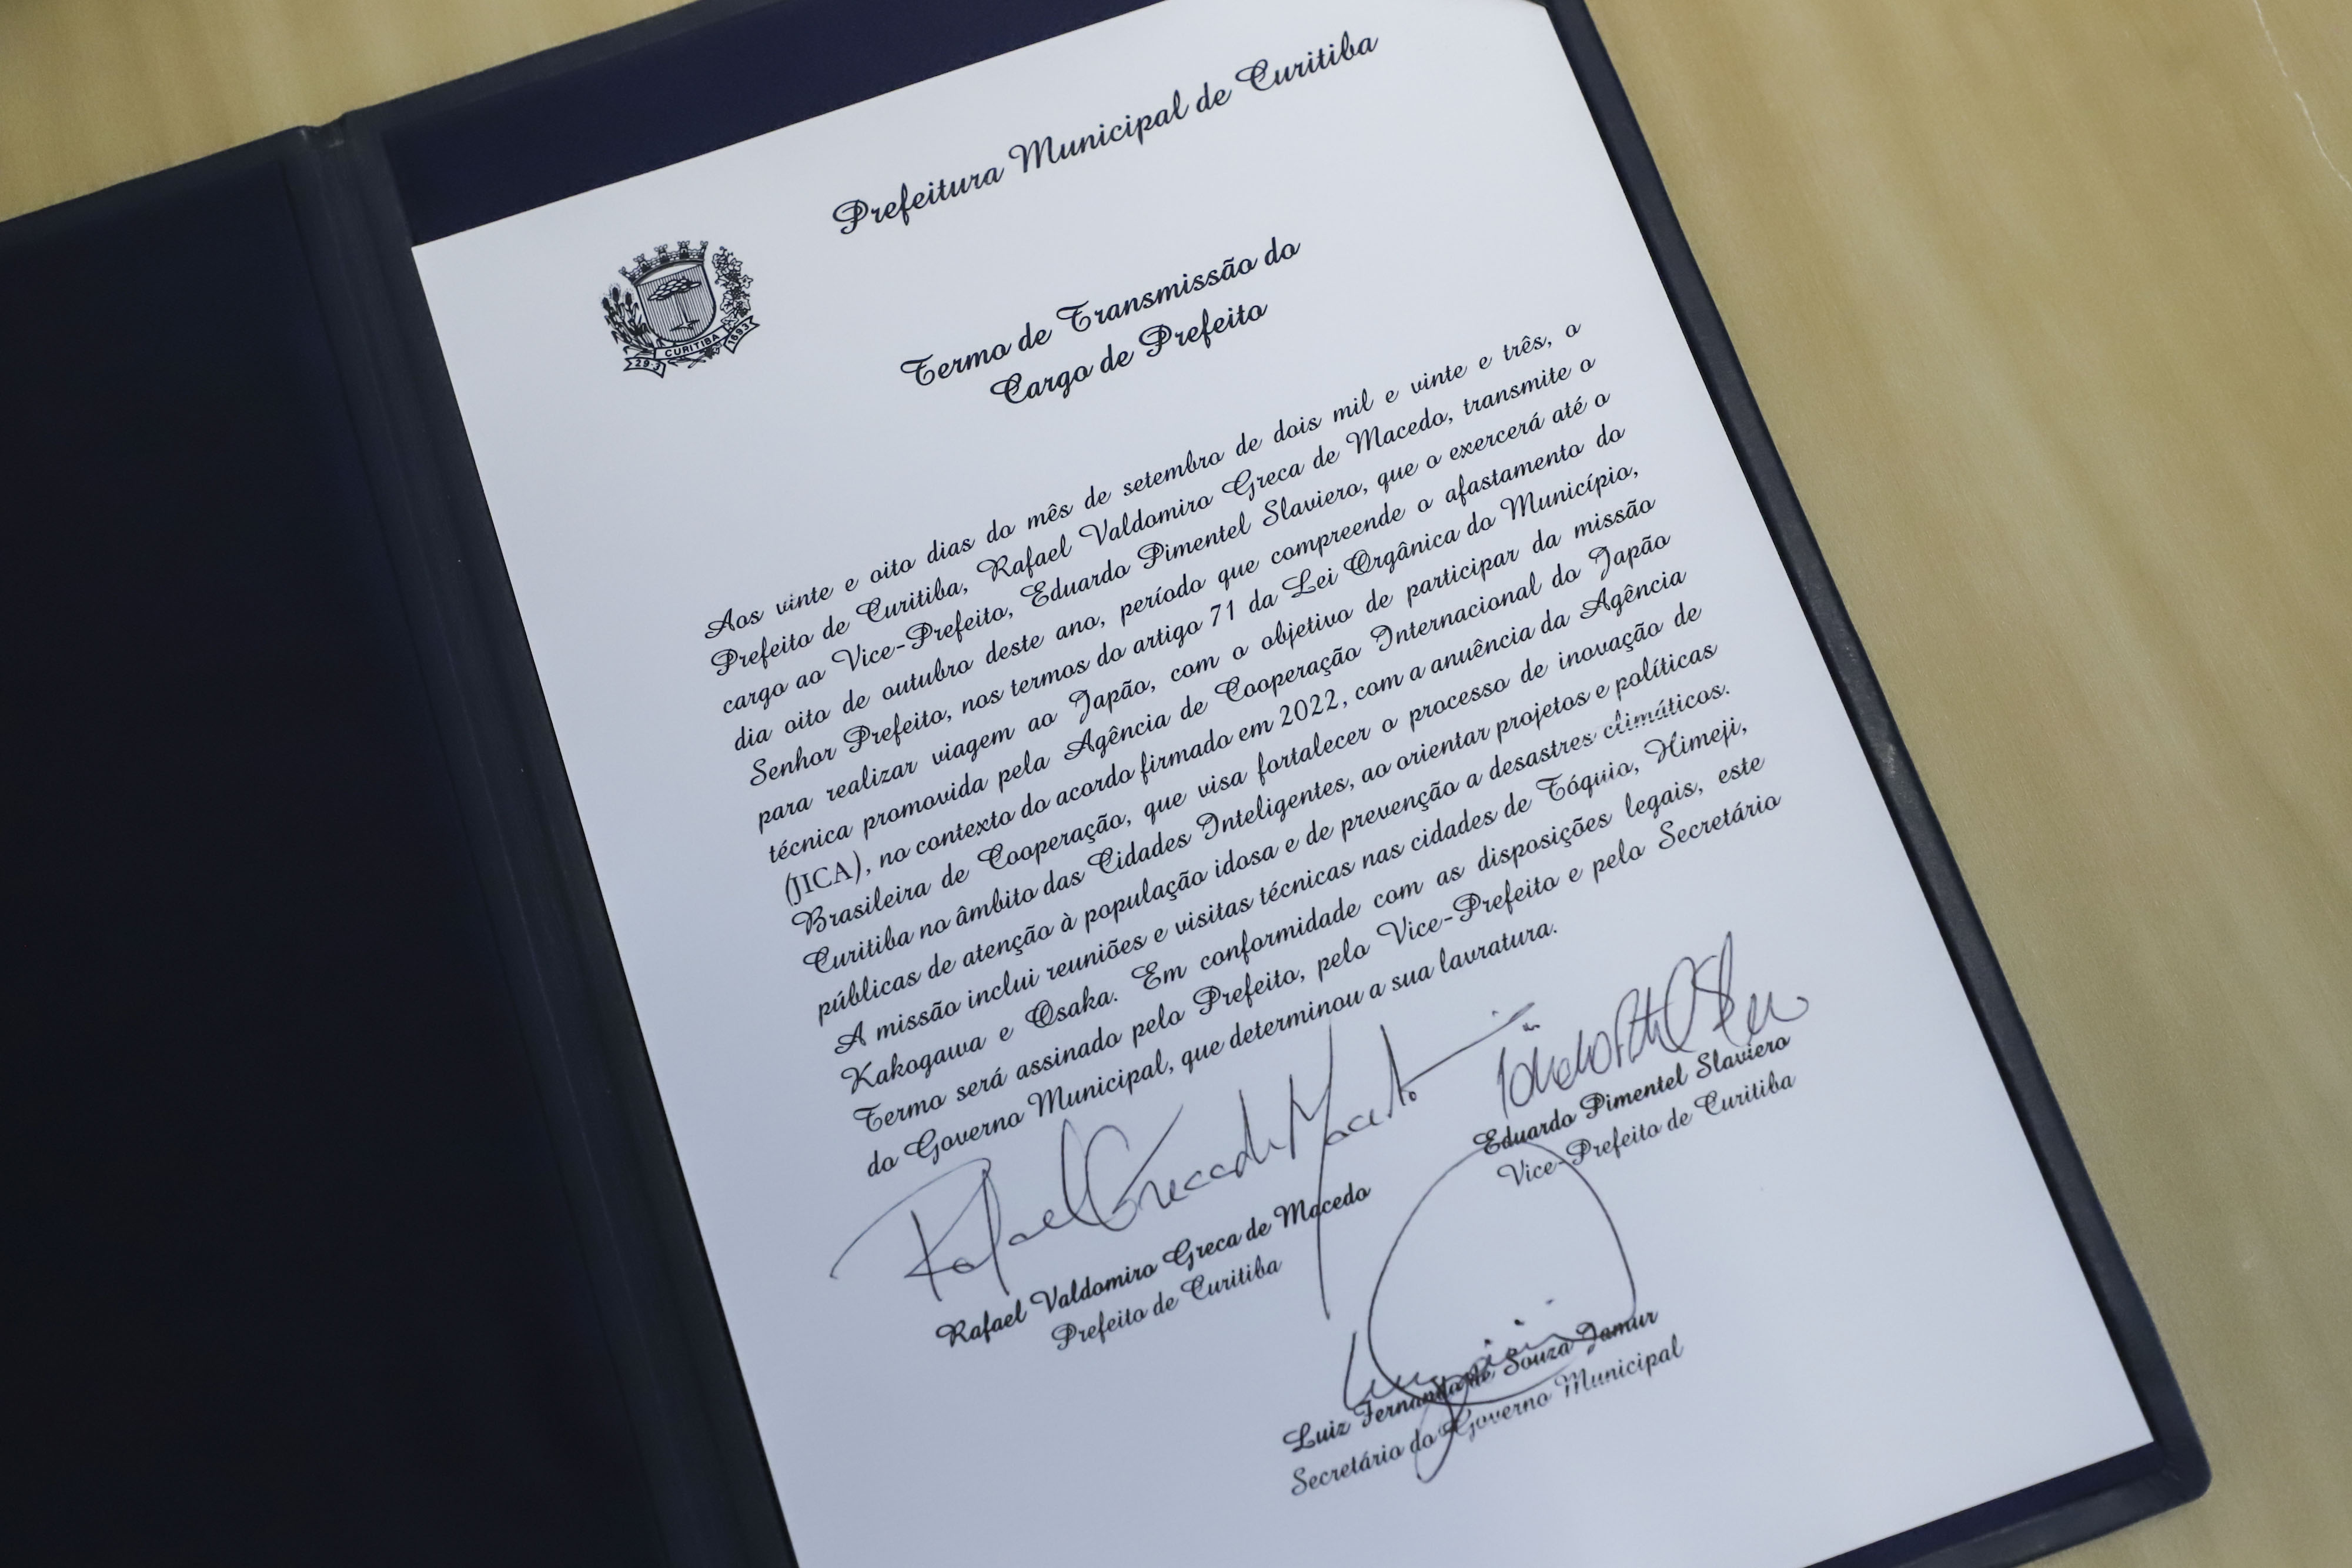 Prefeitura Municipal de Curitiba
29·3 CURITIBA 1693
Termo de Transmissão do
Cargo de Prefeito
Aos vinte e oito dias do mês de setembro de dois mil e vinte e três, o
Prefeito de Curitiba, Rafael Valdomiro Greca de Macedo, transmite o
cargo ao Vice-Prefeito, Eduardo Pimentel Slaviero, que o exercerá até o
dia oito de outubro deste ano, período que compreende o afastamento do
Senhor Prefeito, nos termos do artigo 71 da Lei Orgânica do Município,
para realizar viagem ao Japão, com o objetivo de participar da missão
técnica promovida pela Agência de Cooperação Internacional do Japão
(JICA), no contexto do acordo firmado em 2022, com a anuência da Agência
Brasileira de Cooperação, que visa fortalecer o processo de inovação de
Curitiba no âmbito das Cidades Inteligentes, ao orientar projetos e políticas
públicas de atenção à população idosa e de prevenção a desastres climáticos.
A missão inclui reuniões e visitas técnicas nas cidades de Tóquio, Himeji,
Kakogawa e Osaka. Em conformidade com as disposições legais, este
Termo será assinado pelo Prefeito, pelo Vice-Prefeito e pelo Secretário
do Governo Municipal, que determinou a sua lavratura.
Rafael Greca de Macedo
Rafael Valdomiro Greca de Macedo
Prefeito de Curitiba
Eduardo Pimentel Slaviero
Vice-Prefeito de Curitiba
Luiz Fernando de Souza Jamur
Secretário do Governo Municipal